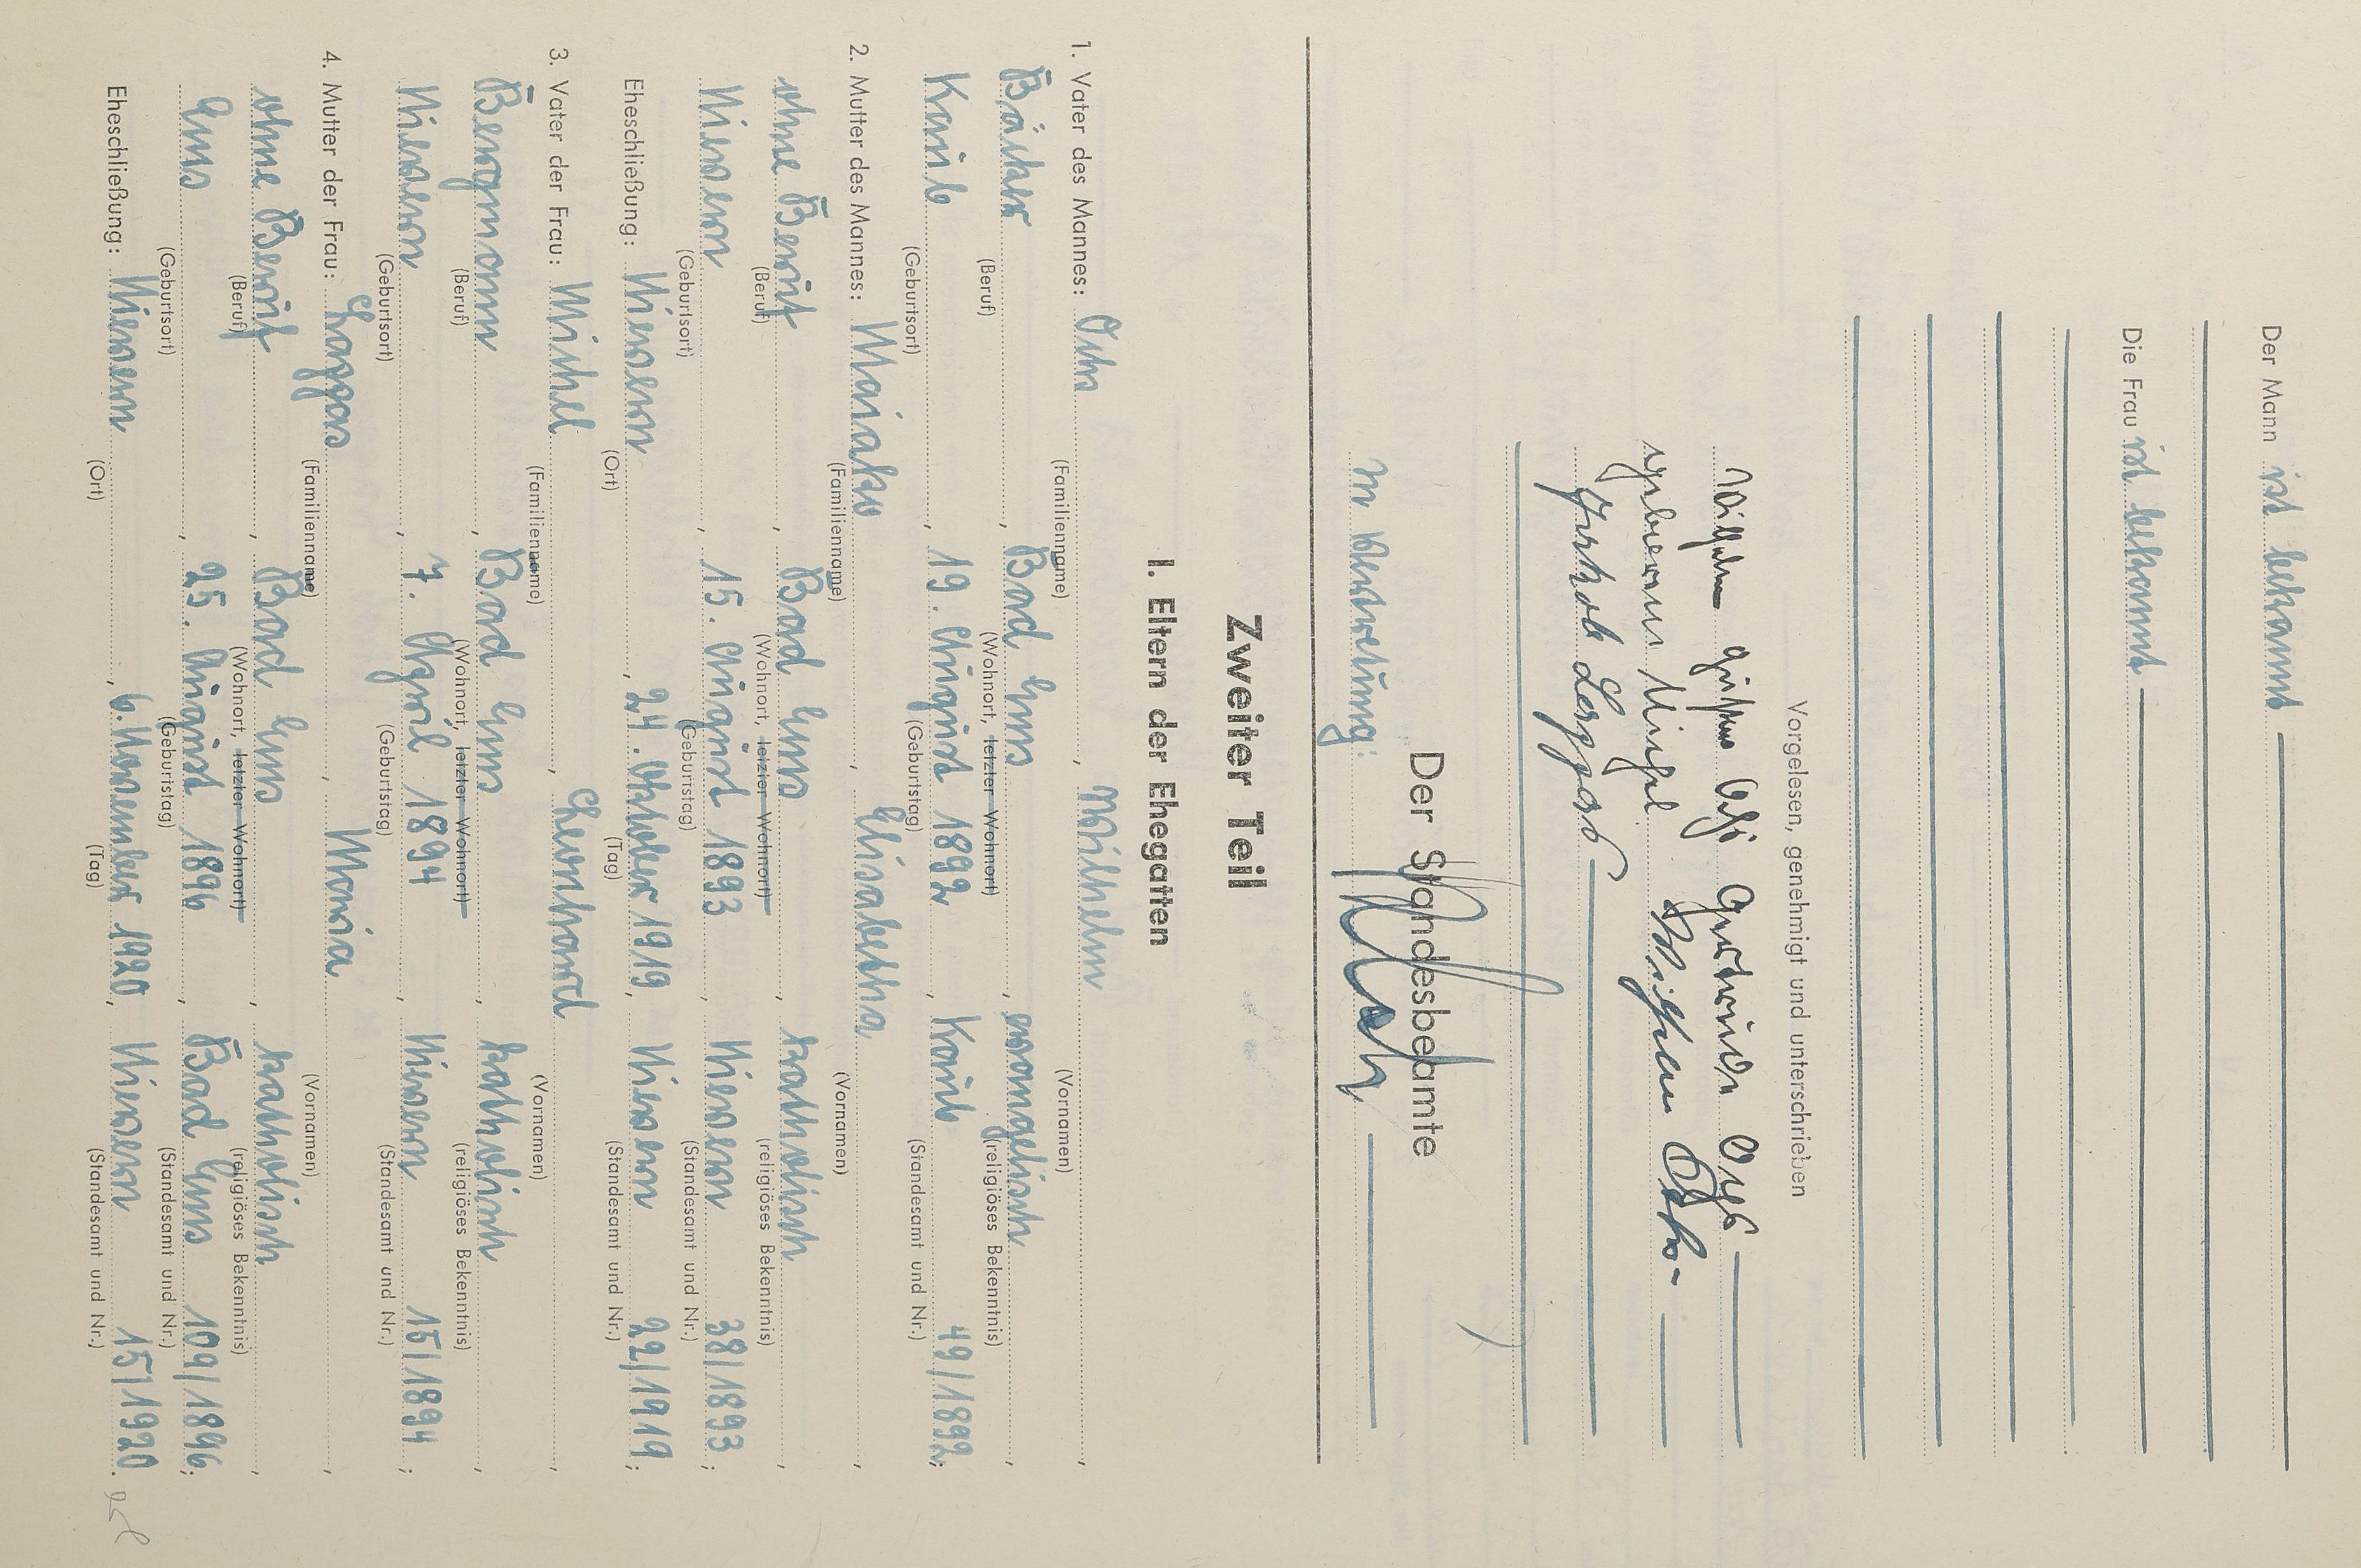 Der Mann ist bekannt
Die Frau ist bekannt
Vorgelesen, genehmigt und unterschrieben
Wilhelm Ochs Gertrud Ochs
geborene Michel Wilhelm Ochs
Jakob
Der Standesbeamte
In Vertretung:
Zweiter Teil
I. Eltern der Ehegatten
1. Vater des Mannes: Ochs, Wilhelm,
(Familienname) (Vornamen)
Bäcker, Bad Ems, evangelisch,
(Beruf) (Wohnort, letzter Wohnort) (religiöses Bekenntnis)
Kaub, 19. August 1892, Kaub 49/1892;
(Geburtsort) (Geburtstag) (Standesamt und Nr.)
2. Mutter des Mannes: Elisabetha,
(Familienname) (Vornamen)
ohne Beruf, Bad Ems, katholisch,
(Beruf) (Wohnort, letzter Wohnort) (religiöses Bekenntnis)
Nievern, 15. August 1893, Nievern 38/1893;
(Geburtsort) (Geburtstag) (Standesamt und Nr.)
Eheschließung: Nievern, 24. Oktober 1919, Nievern 22/1919;
(Ort) (Tag) (Standesamt und Nr.)
3. Vater der Frau: Michel, Leonhard,
(Familienname) (Vornamen)
Bergmann, Bad Ems, katholisch,
(Beruf) (Wohnort, letzter Wohnort) (religiöses Bekenntnis)
Nievern, 7. April 1894, Nievern 15/1894;
(Geburtsort) (Geburtstag) (Standesamt und Nr.)
4. Mutter der Frau: Lappas, Maria,
(Familienname) (Vornamen)
ohne Beruf, Bad Ems, katholisch,
(Beruf) (Wohnort, letzter Wohnort) (religiöses Bekenntnis)
Ems, 25. August 1896, Bad Ems 109/1896;
(Geburtsort) (Geburtstag) (Standesamt und Nr.)
Eheschließung: Nievern, 6. November 1920, Nievern 15/1920.
(Ort) (Tag) (Standesamt und Nr.)